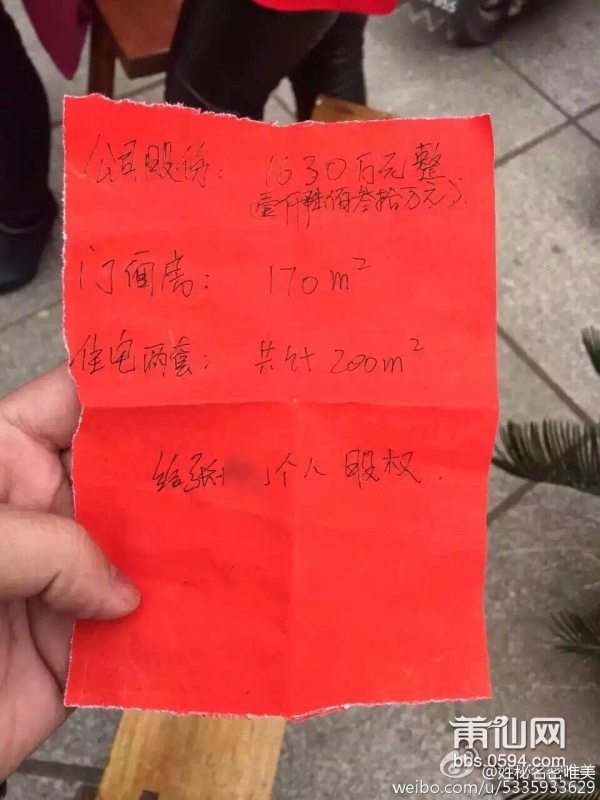 公司股份: 1630万元整
(壹仟陆佰叁拾万元)
门面房: 170m²
住宅两套: 共计200m²
给张 个人股权.
莆仙网
bbs.0594.com
@姓秘名密唯美
weibo.com/u/5335933629